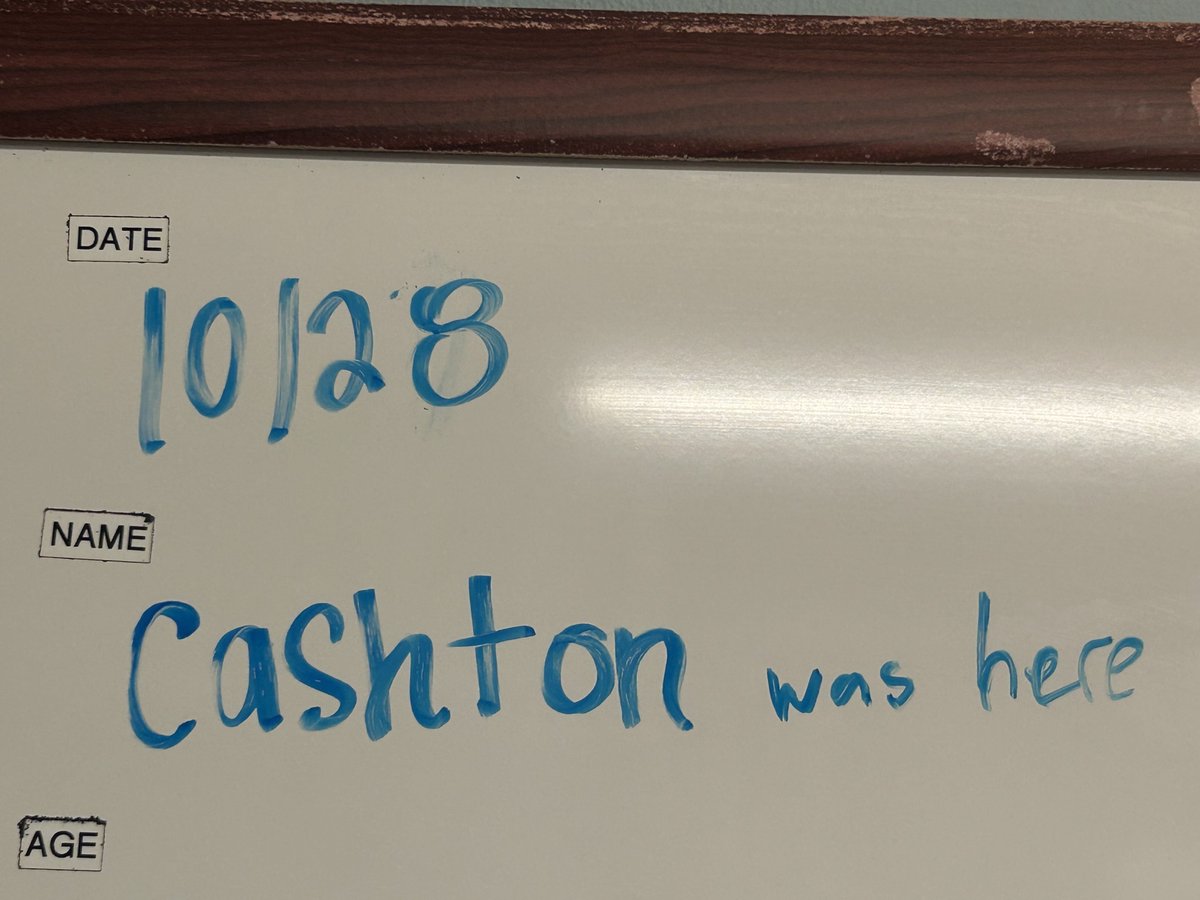 DATE
10/28
NAME
Cashton was here
AGE